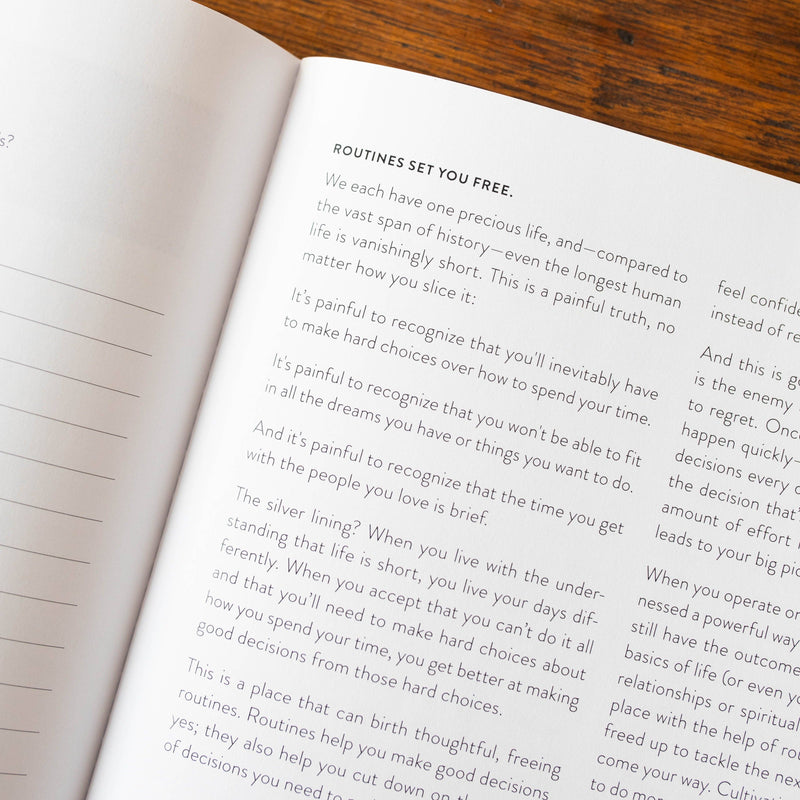 ROUTINES SET YOU FREE.
We each have one precious life, and—compared to
the vast span of history—even the longest human
life is vanishingly short. This is a painful truth, no
matter how you slice it:
It's painful to recognize that you'll inevitably have
to make hard choices over how to spend your time.
It's painful to recognize that you won't be able to fit
in all the dreams you have or things you want to do.
And it's painful to recognize that the time you get
with the people you love is brief.
The silver lining? When you live with the under-
standing that life is short, you live your days dif-
ferently. When you accept that you can't do it all
and that you'll need to make hard choices about
how you spend your time, you get better at making
good decisions from those hard choices.
This is a place that can birth thoughtful, freeing
routines. Routines help you make good decisions
yes; they also help you cut down on
of decisions you need to
feel
instead of
And this is
is the enemy
to regret.
happen quickly—
decisions every
the decision
amount of effort
leads to your big
When you operate
nessed a powerful way
still have the outcome
basics of life (or even
relationships or
place with the help of
freed up to tackle the
come your way.
to do